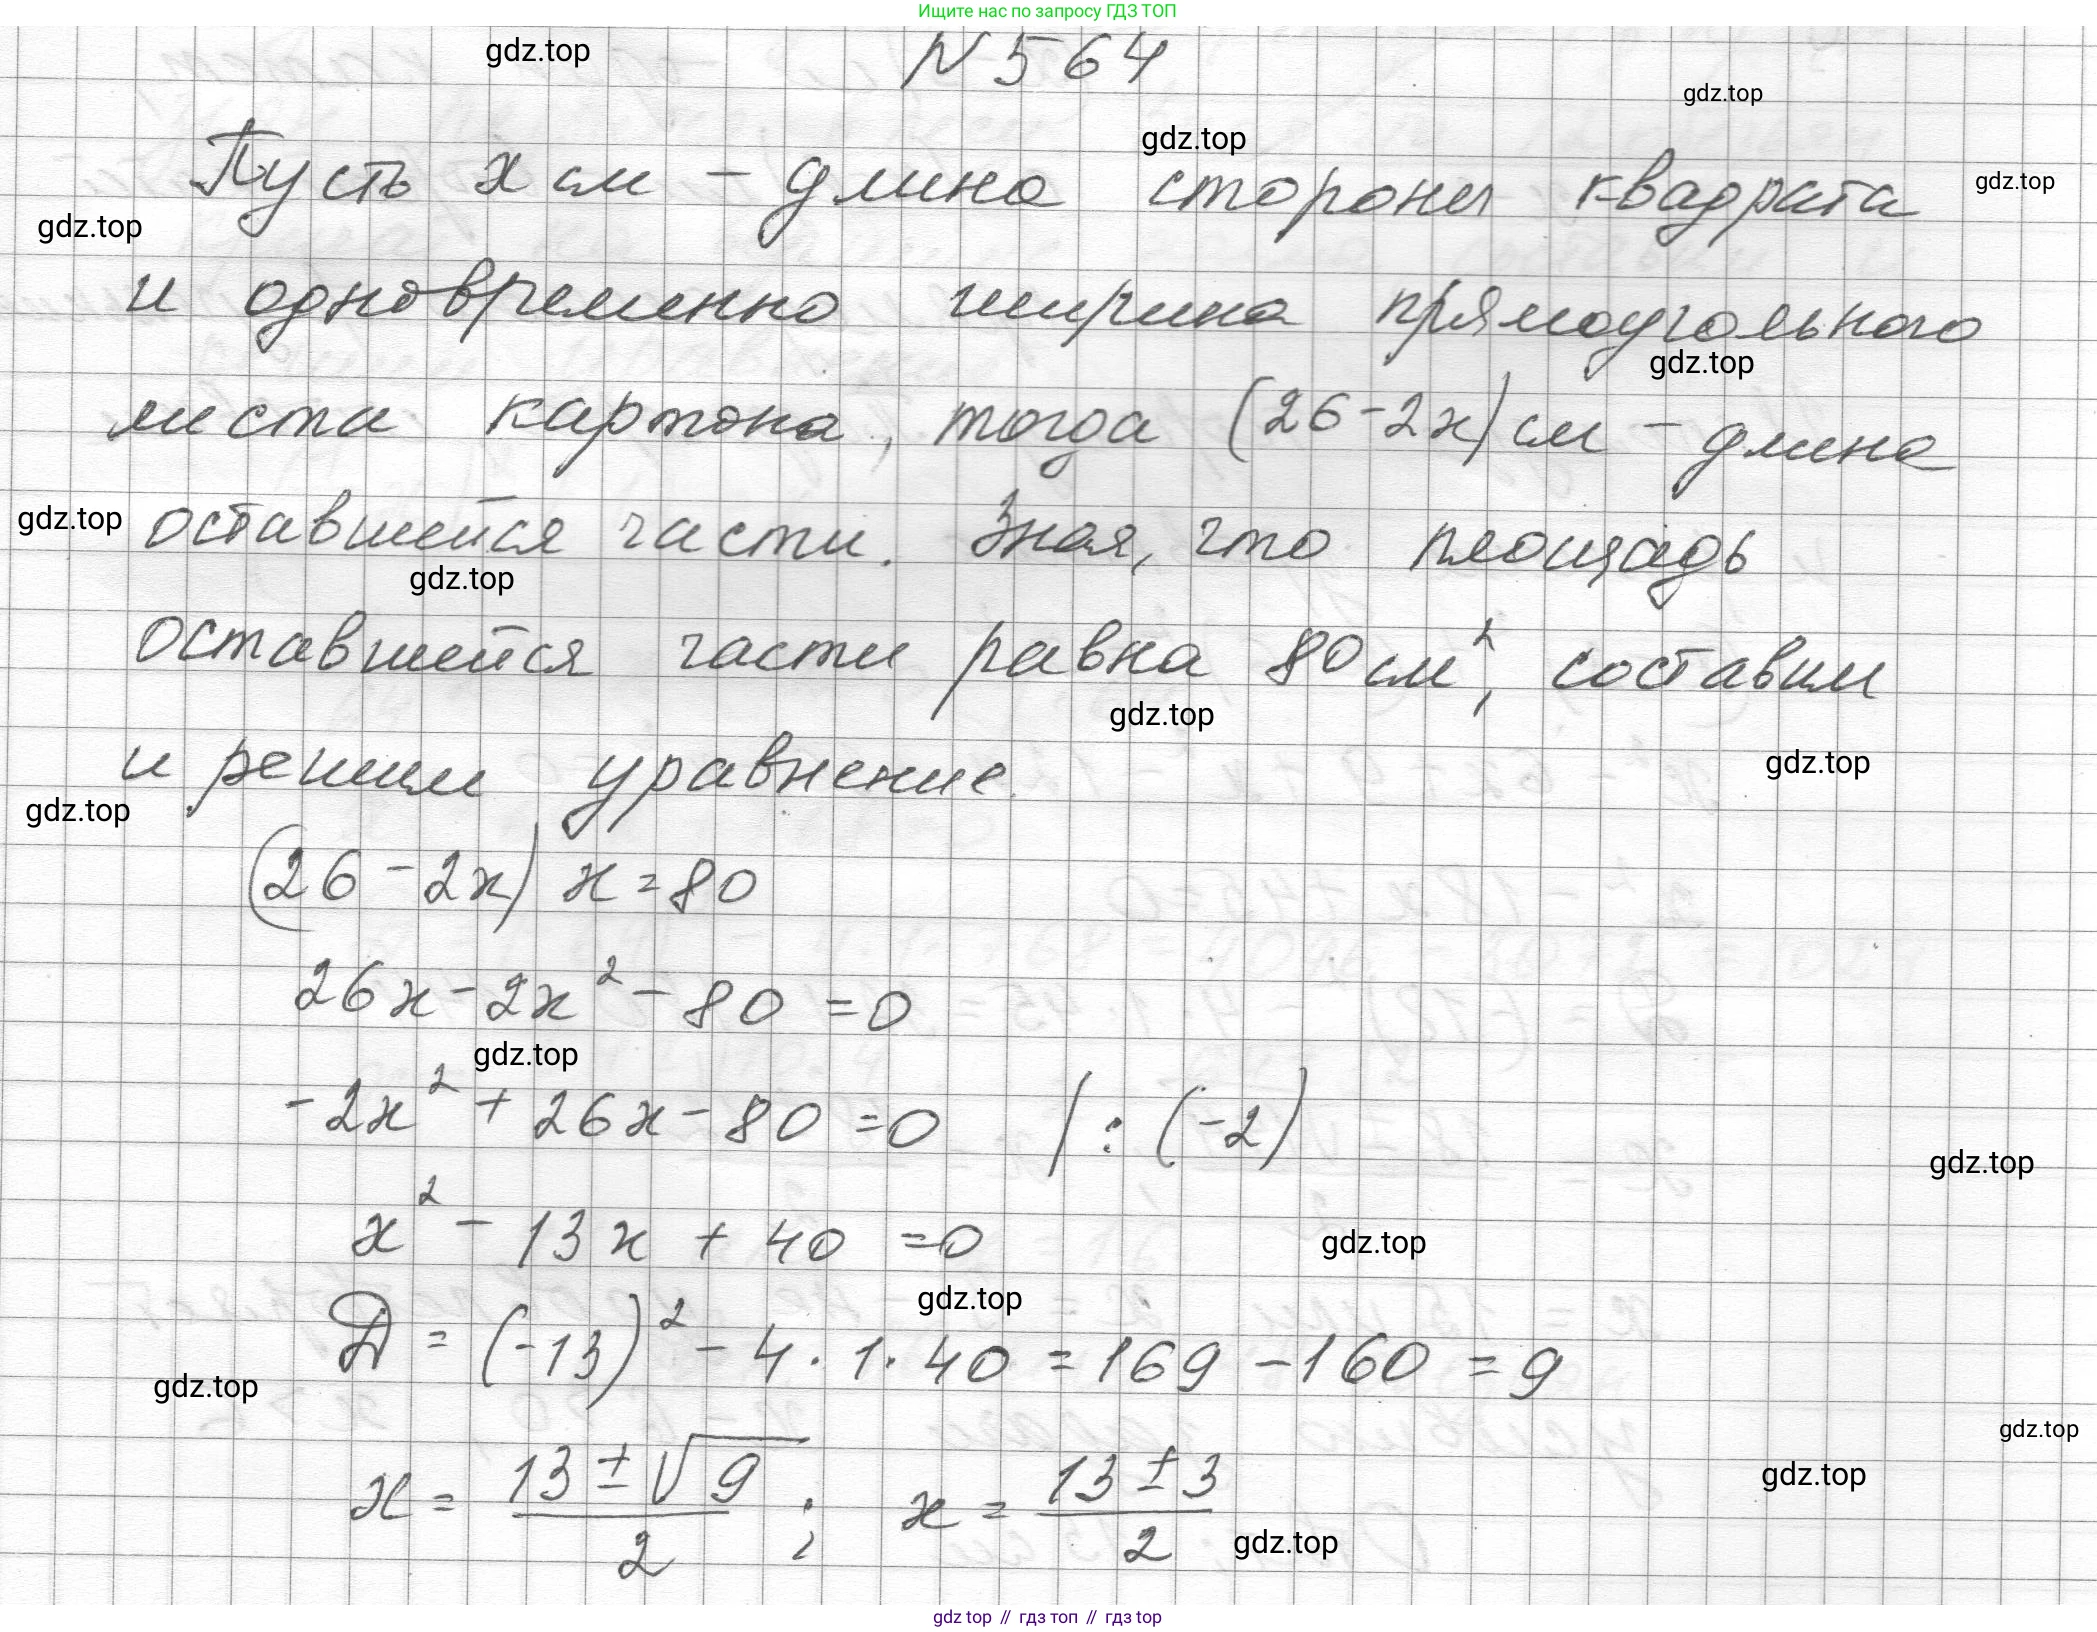 Ищите нас по запросу ГДЗ ТОП
N 564
gdz.top
gdz.top
gdz.top
Пусть x см – длина стороны квадрата
gdz.top
gdz.top
и одновременно ширина прямоугольного
gdz.top
листа картона, тогда (26-2x) см – длина
оставшейся части. Зная, что площадь
gdz.top
gdz.top
оставшейся части равна 80 см², составим
gdz.top
и решим уравнение.
gdz.top
gdz.top
(26-2x) x = 80
26x - 2x² - 80 = 0
gdz.top
-2x² + 26x - 80 = 0 | : (-2)
gdz.top
x² - 13x + 40 = 0
gdz.top
gdz.top
D = (-13)² - 4 · 1 · 40 = 169 - 160 = 9
gdz.top
gdz.top
gdz.top
x = (13 ± √9)/2 ; x = (13 ± 3)/2
gdz.top
gdz top // гдз топ // гдз top